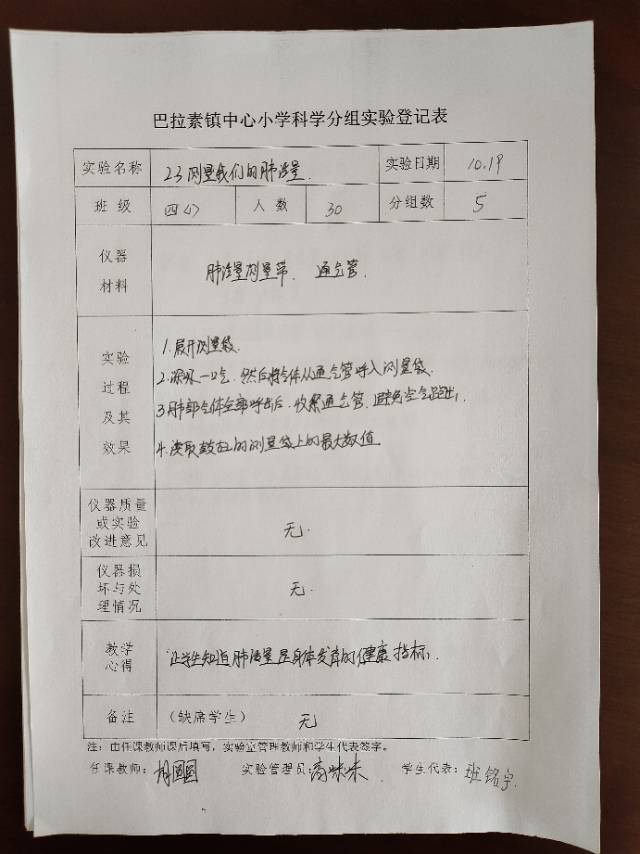 巴拉素镇中心小学科学分组实验登记表
实验名称 2.3 测量我们的肺活量. 实验日期 10.19
班级 四(2) 人数 30 分组数 5
仪器材料 肺活量测量带. 通气管.
实验过程及其效果 1.展开测量袋.
2.深吸一口气. 然后将气体从通气管呼入测量袋.
3.肺部气体全部呼出后, 收紧通气管. 避免空气跑出,
4.读取鼓起的测量袋上的最大数值
仪器质量或实验改进意见 无.
仪器损坏与处理情况 无.
教学心得 让学生知道肺活量是身体发育的健康指标,
备注 (缺席学生) 无
注:由任课教师课后填写,实验室管理教师和学生代表签字。
任课教师: 实验管理员:高咪咪 学生代表:班铭宇